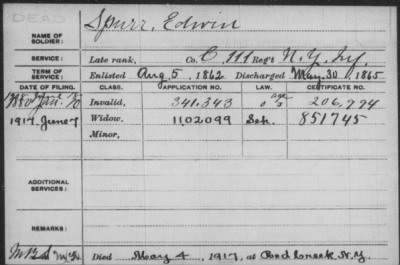 DEAD
NAME OF SOLDIER: Spurr, Edwin
SERVICE: Late rank, Co. C 111 Reg't N.Y. Inf.
TERM OF SERVICE: Enlisted Aug 5, 1862 Discharged May 30, 1865
DATE OF FILING. CLASS. APPLICATION NO. LAW. CERTIFICATE NO.
1880 Jan. Invalid, 341.343 206,794
1917 June 7 Widow, 1102099 851745
Minor,
ADDITIONAL SERVICES:
REMARKS:
Died May 4, 1917, at Red Creek N.Y.